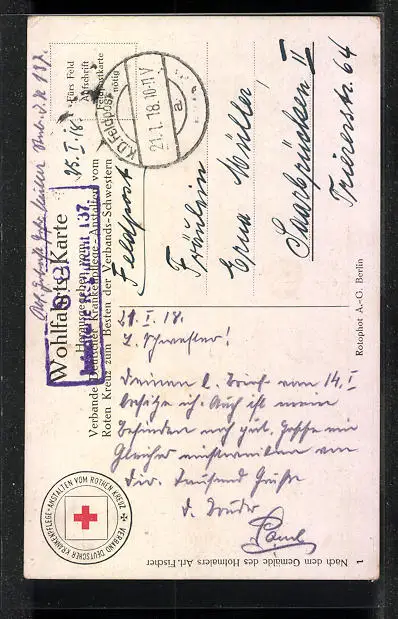 Wohlfahrts-Karte
Herausgegeben vom
Verbande Deutscher Krankenpflege-Anstalten vom
Roten Kreuz zum Besten der Verbands-Schwestern
Fürs Feld
Aufschrift
Feldpostkarte
nötig
K.D.Feldpost
21.1.18.10-11V
a
25.I.18.
137.
Feldpost
Fräulein
Erna Müller
Saarbrücken II
Triererstr. 64
21.I.18.
L. Schwester!
Deinen l. Brief vom 14.I
besitze ich. Auch ist mein
Befinden noch gut. Hoffe ein
Gleiches von
Dir. Tausend Grüße
d. Bruder
Paul
VERBAND DEUTSCHER KRANKENPFLEGE-ANSTALTEN VOM ROTHEN KREUZ
Rotophot A.-G. Berlin
Nach dem Gemälde des Hofmalers Art. Fischer
1